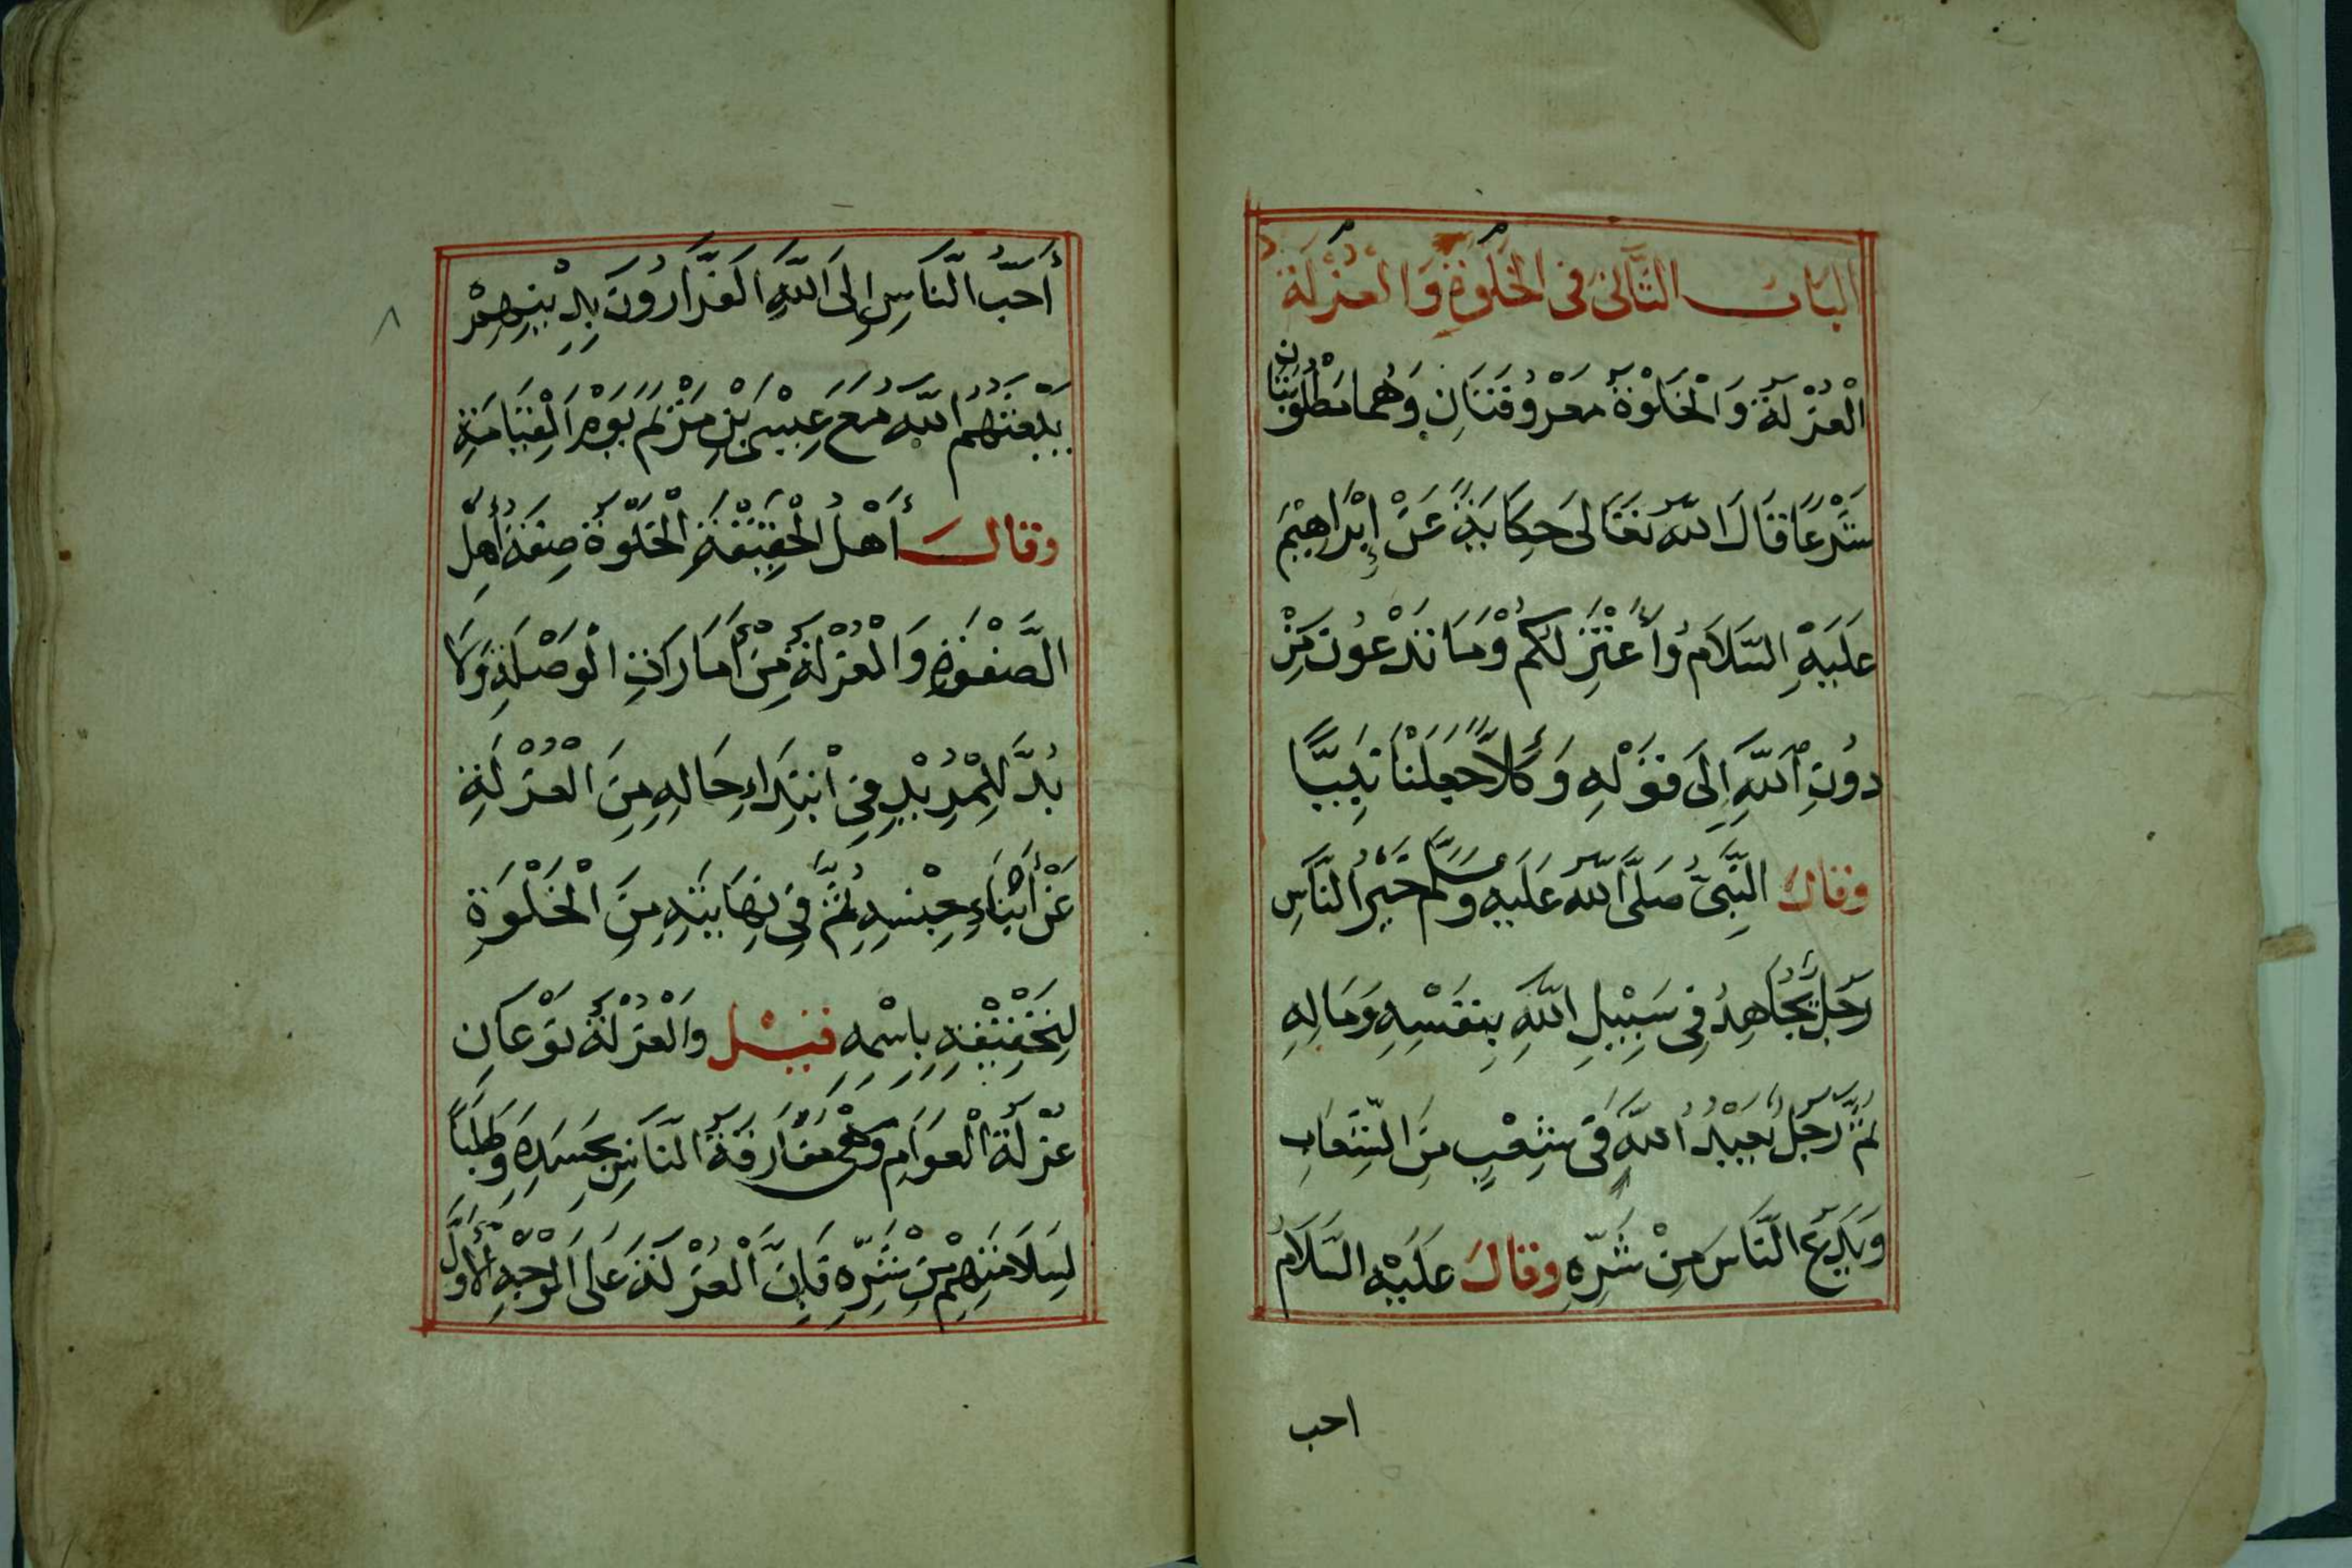 البَابُ الثَّانِي فِي الخَلْوَةِ وَالعُزْلَةِ
الْعُزْلَةُ وَالْخَلْوَةُ مَعْرُوفَتَانِ وَهُمَا مَطْلُوبَتَانِ
شَرْعًا قَالَ اللّٰهُ تَعَالَى حِكَايَةً عَنْ إِبْرَاهِيْمَ
عَلَيْهِ السَّلَامُ وَأَعْتَزِلُكُمْ وَمَا تَدْعُونَ مِنْ
دُونِ اللّٰهِ إِلَى قَوْلِهِ وَكُلًّا جَعَلْنَا نَبِيًّا
وَقَالَ النَّبِيُّ صَلَّى اللّٰهُ عَلَيْهِ وَسَلَّمَ خَيْرُ النَّاسِ
رَجُلٌ يُجَاهِدُ فِي سَبِيْلِ اللّٰهِ بِنَفْسِهِ وَمَالِهِ
ثُمَّ رَجُلٌ يَعْبُدُ اللّٰهَ فِي شِعْبٍ مِنَ الشِّعَابِ
وَيَدَعُ النَّاسَ مِنْ شَرِّهِ وَقَالَ عَلَيْهِ السَّلَامُ
احب
أَحَبُّ النَّاسِ إِلَى اللّٰهِ الفَرَّارُونَ بِدِيْنِهِمْ
يَبْعَثُهُمُ اللّٰهُ مَعَ عِيْسَى بْنِ مَرْيَمَ يَوْمَ الْقِيَامَةِ
وَقَالَ أَهْلُ الْحَقِيْقَةِ الْخَلْوَةُ صِفَةُ أَهْلِ
الصَّفْوَةِ وَالْعُزْلَةُ مِنْ أَمَارَاتِ الْوَصْلَةِ وَلَا
بُدَّ لِلْمُرِيْدِ فِي ابْتِدَاءِ حَالِهِ مِنَ الْعُزْلَةِ
عَنْ أَبْنَاءِ جِنْسِهِ ثُمَّ فِي نِهَايَتِهِ مِنَ الْخَلْوَةِ
لِتَحْقِيْقِهِ بِاسْمِهِ قِيْلَ وَالْعُزْلَةُ نَوْعَانِ
عُزْلَةُ الْعَوَامِ وَهِيَ مُفَارَقَةُ النَّاسِ بِجَسَدِهِ وَطَلَبًا
لِسَلَامَتِهِمْ مِنْ شَرِّهِ فَإِنَّ الْعُزْلَةَ عَلَى الْوَجْهِ الْأَوَّلِ
٨